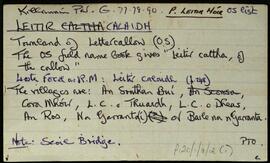 Killannin Par. G. 77-78-90. P. Leitir Móir OS list
LEITIR CALTHA CALAIDH
Townland of Lettercallow (OS)
The OS field name Book gives "leitir caltha, of
the callow"
Local Form on R.M: Leitir Calaidh
The villages are: An Srathán Buí,
Cora Mhóir, L.C. Thuaidh, L.C. Theas,
An Ros, Na Garranta or Baile na nGarranta.
Note: Scoil Bridge. PTO